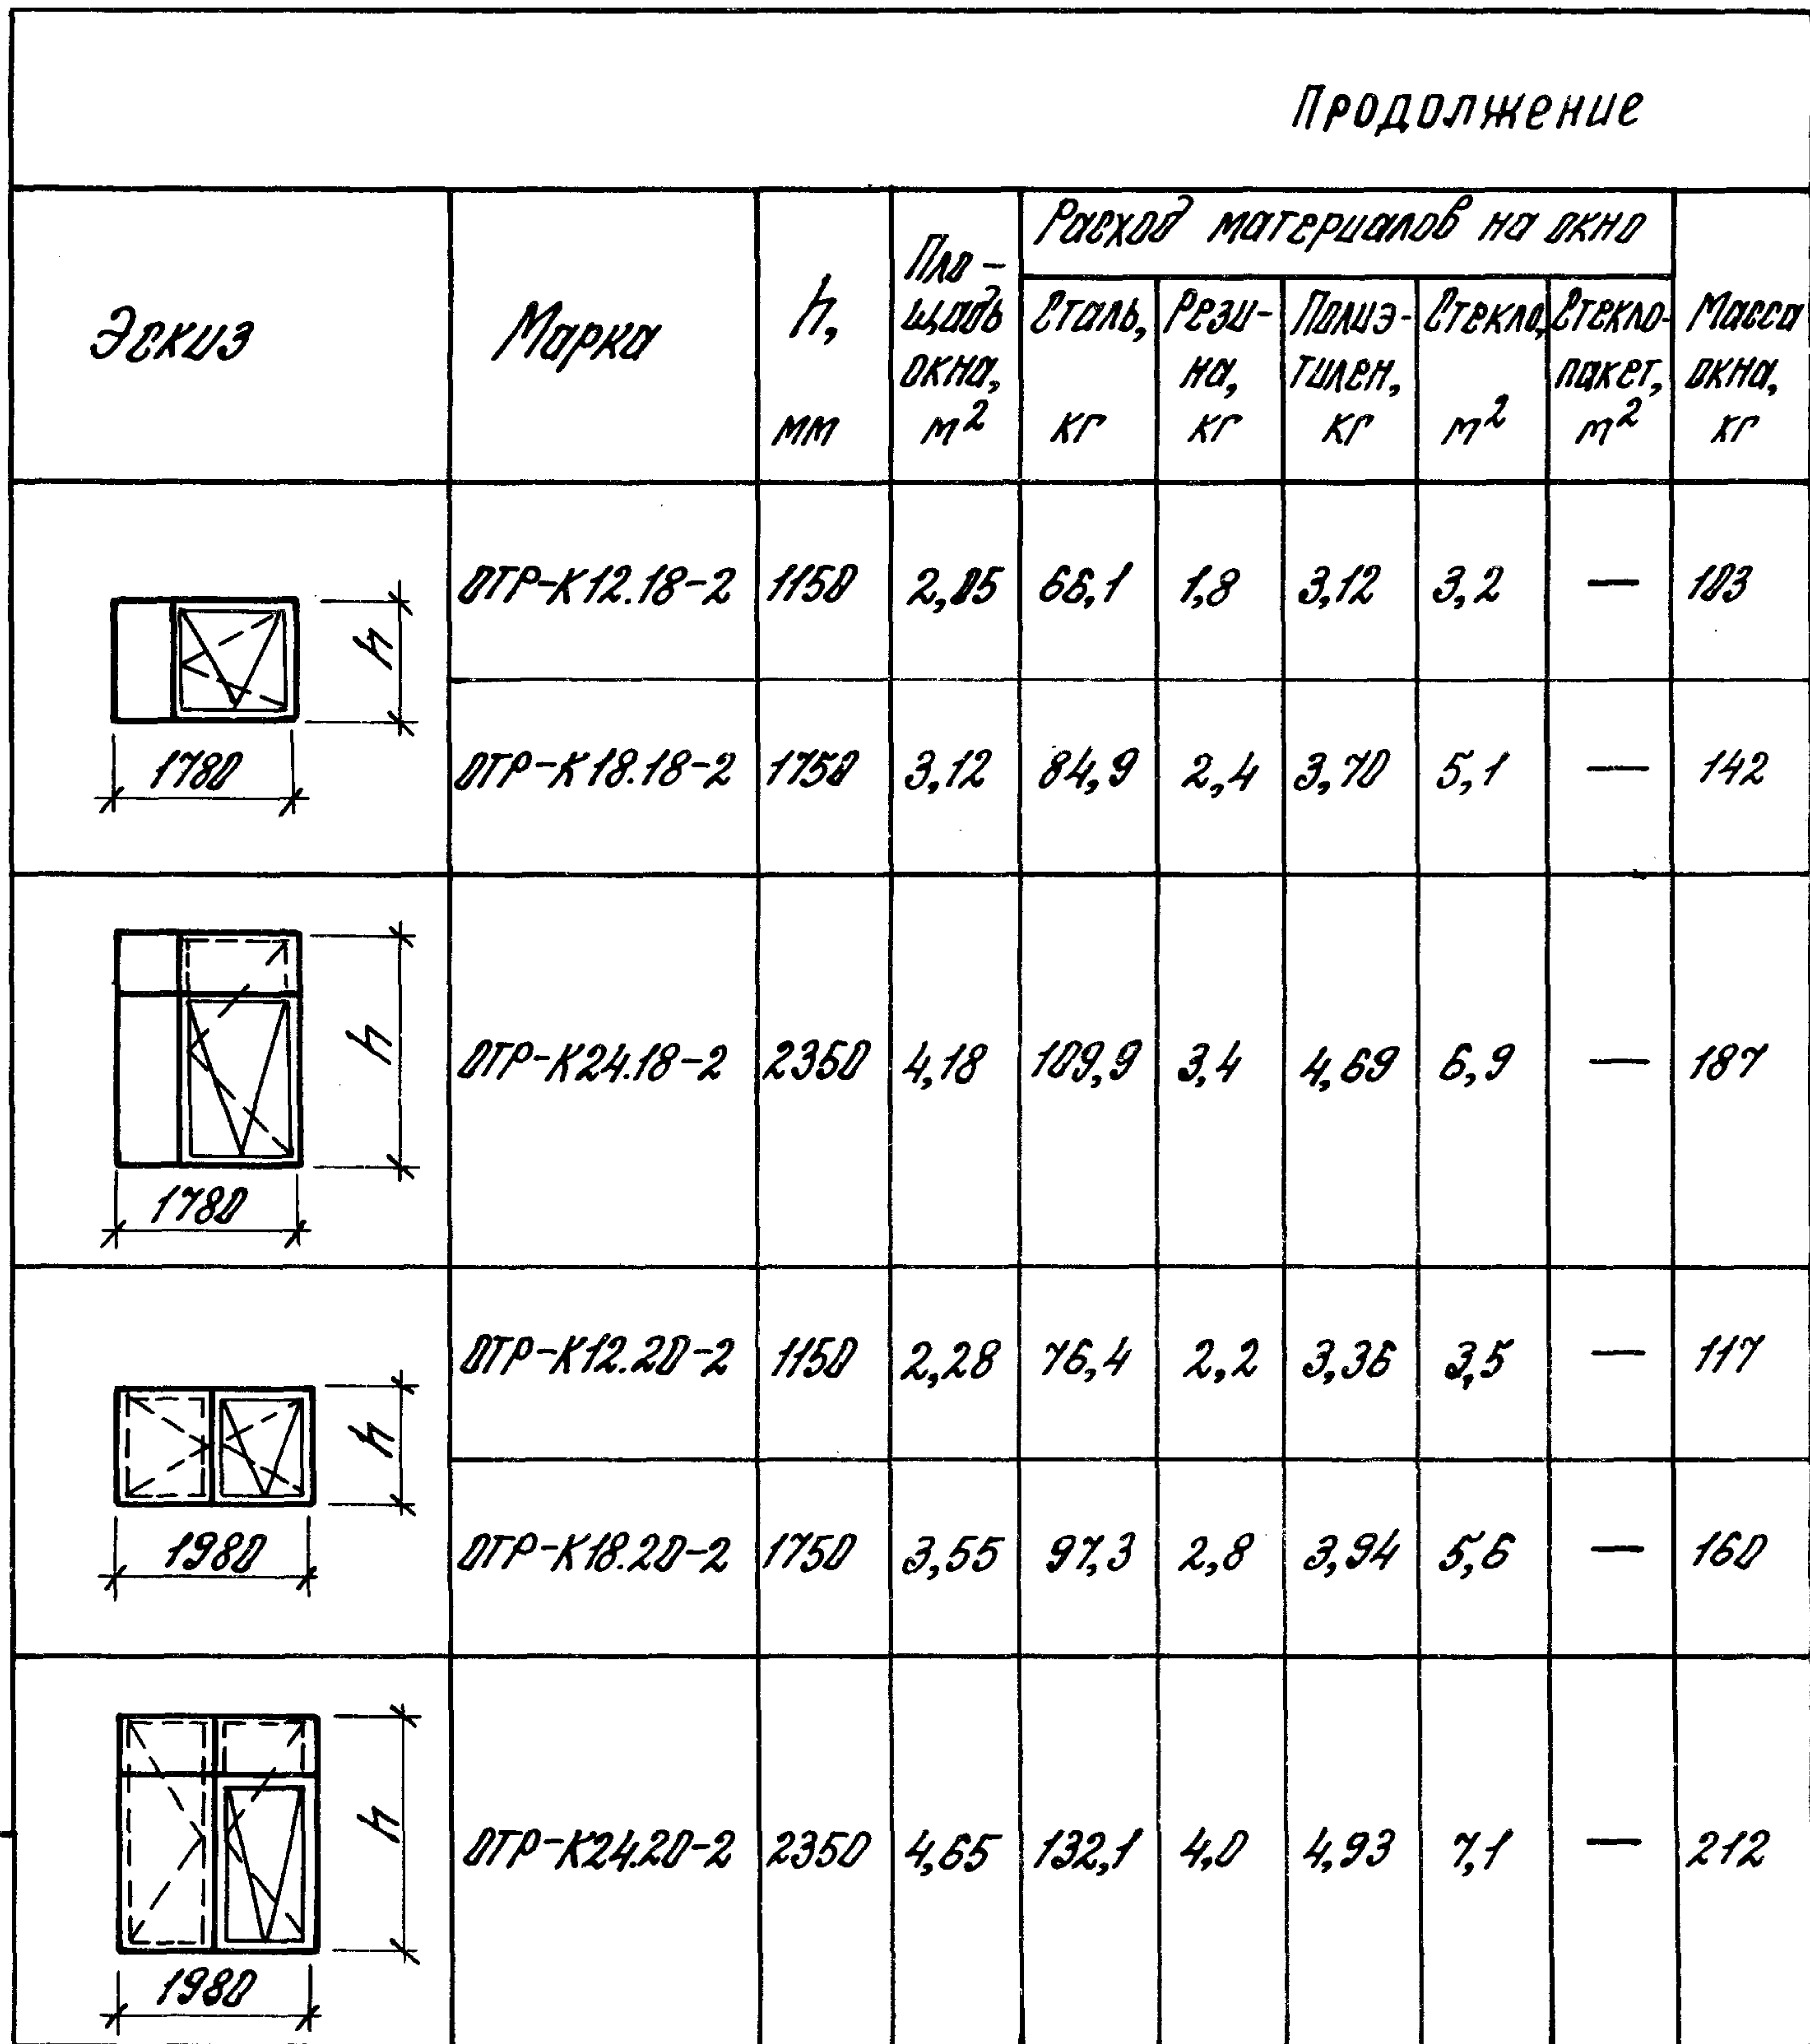 Продолжение
Эскиз
Марка
h,
мм
Пло-
щадь
окна,
м²
Расход материалов на окно
Сталь,
кг
Рези-
на,
кг
Полиэ-
тилен,
кг
Стекло,
м²
Стекло-
пакет,
м²
Масса
окна,
кг
h
1780
ОТР-К12.18-2 1150 2,05 66,1 1,8 3,12 3,2 — 103
ОТР-К18.18-2 1750 3,12 84,9 2,4 3,70 5,1 — 142
h
1780
ОТР-К24.18-2 2350 4,18 109,9 3,4 4,69 6,9 — 187
h
1980
ОТР-К12.20-2 1150 2,28 76,4 2,2 3,36 3,5 — 117
ОТР-К18.20-2 1750 3,55 97,3 2,8 3,94 5,6 — 160
h
1980
ОТР-К24.20-2 2350 4,65 132,1 4,0 4,93 7,1 — 212